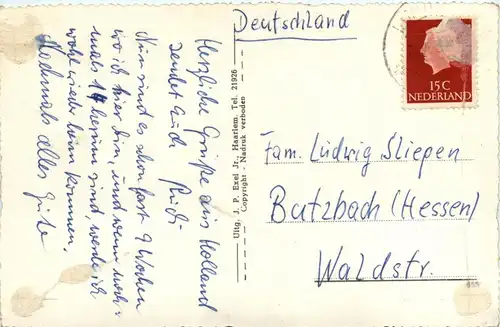 Herzliche Grüße aus Holland
sendet Euch
Nun sind es schon fast 9 Wochen
wo ich hier bin, und wenn noch-
mals 14 herum sind werde ich
wohl wieder heim kommen.
Nochmals alles Gute
Uitg. J. P. Exel Jr., Haarlem. Tel. 21926
Copyright - Nadruk verboden
Deutschland
15 C
NEDERLAND
Fam. Ludwig Sliepen
Butzbach (Hessen)
Waldstr.